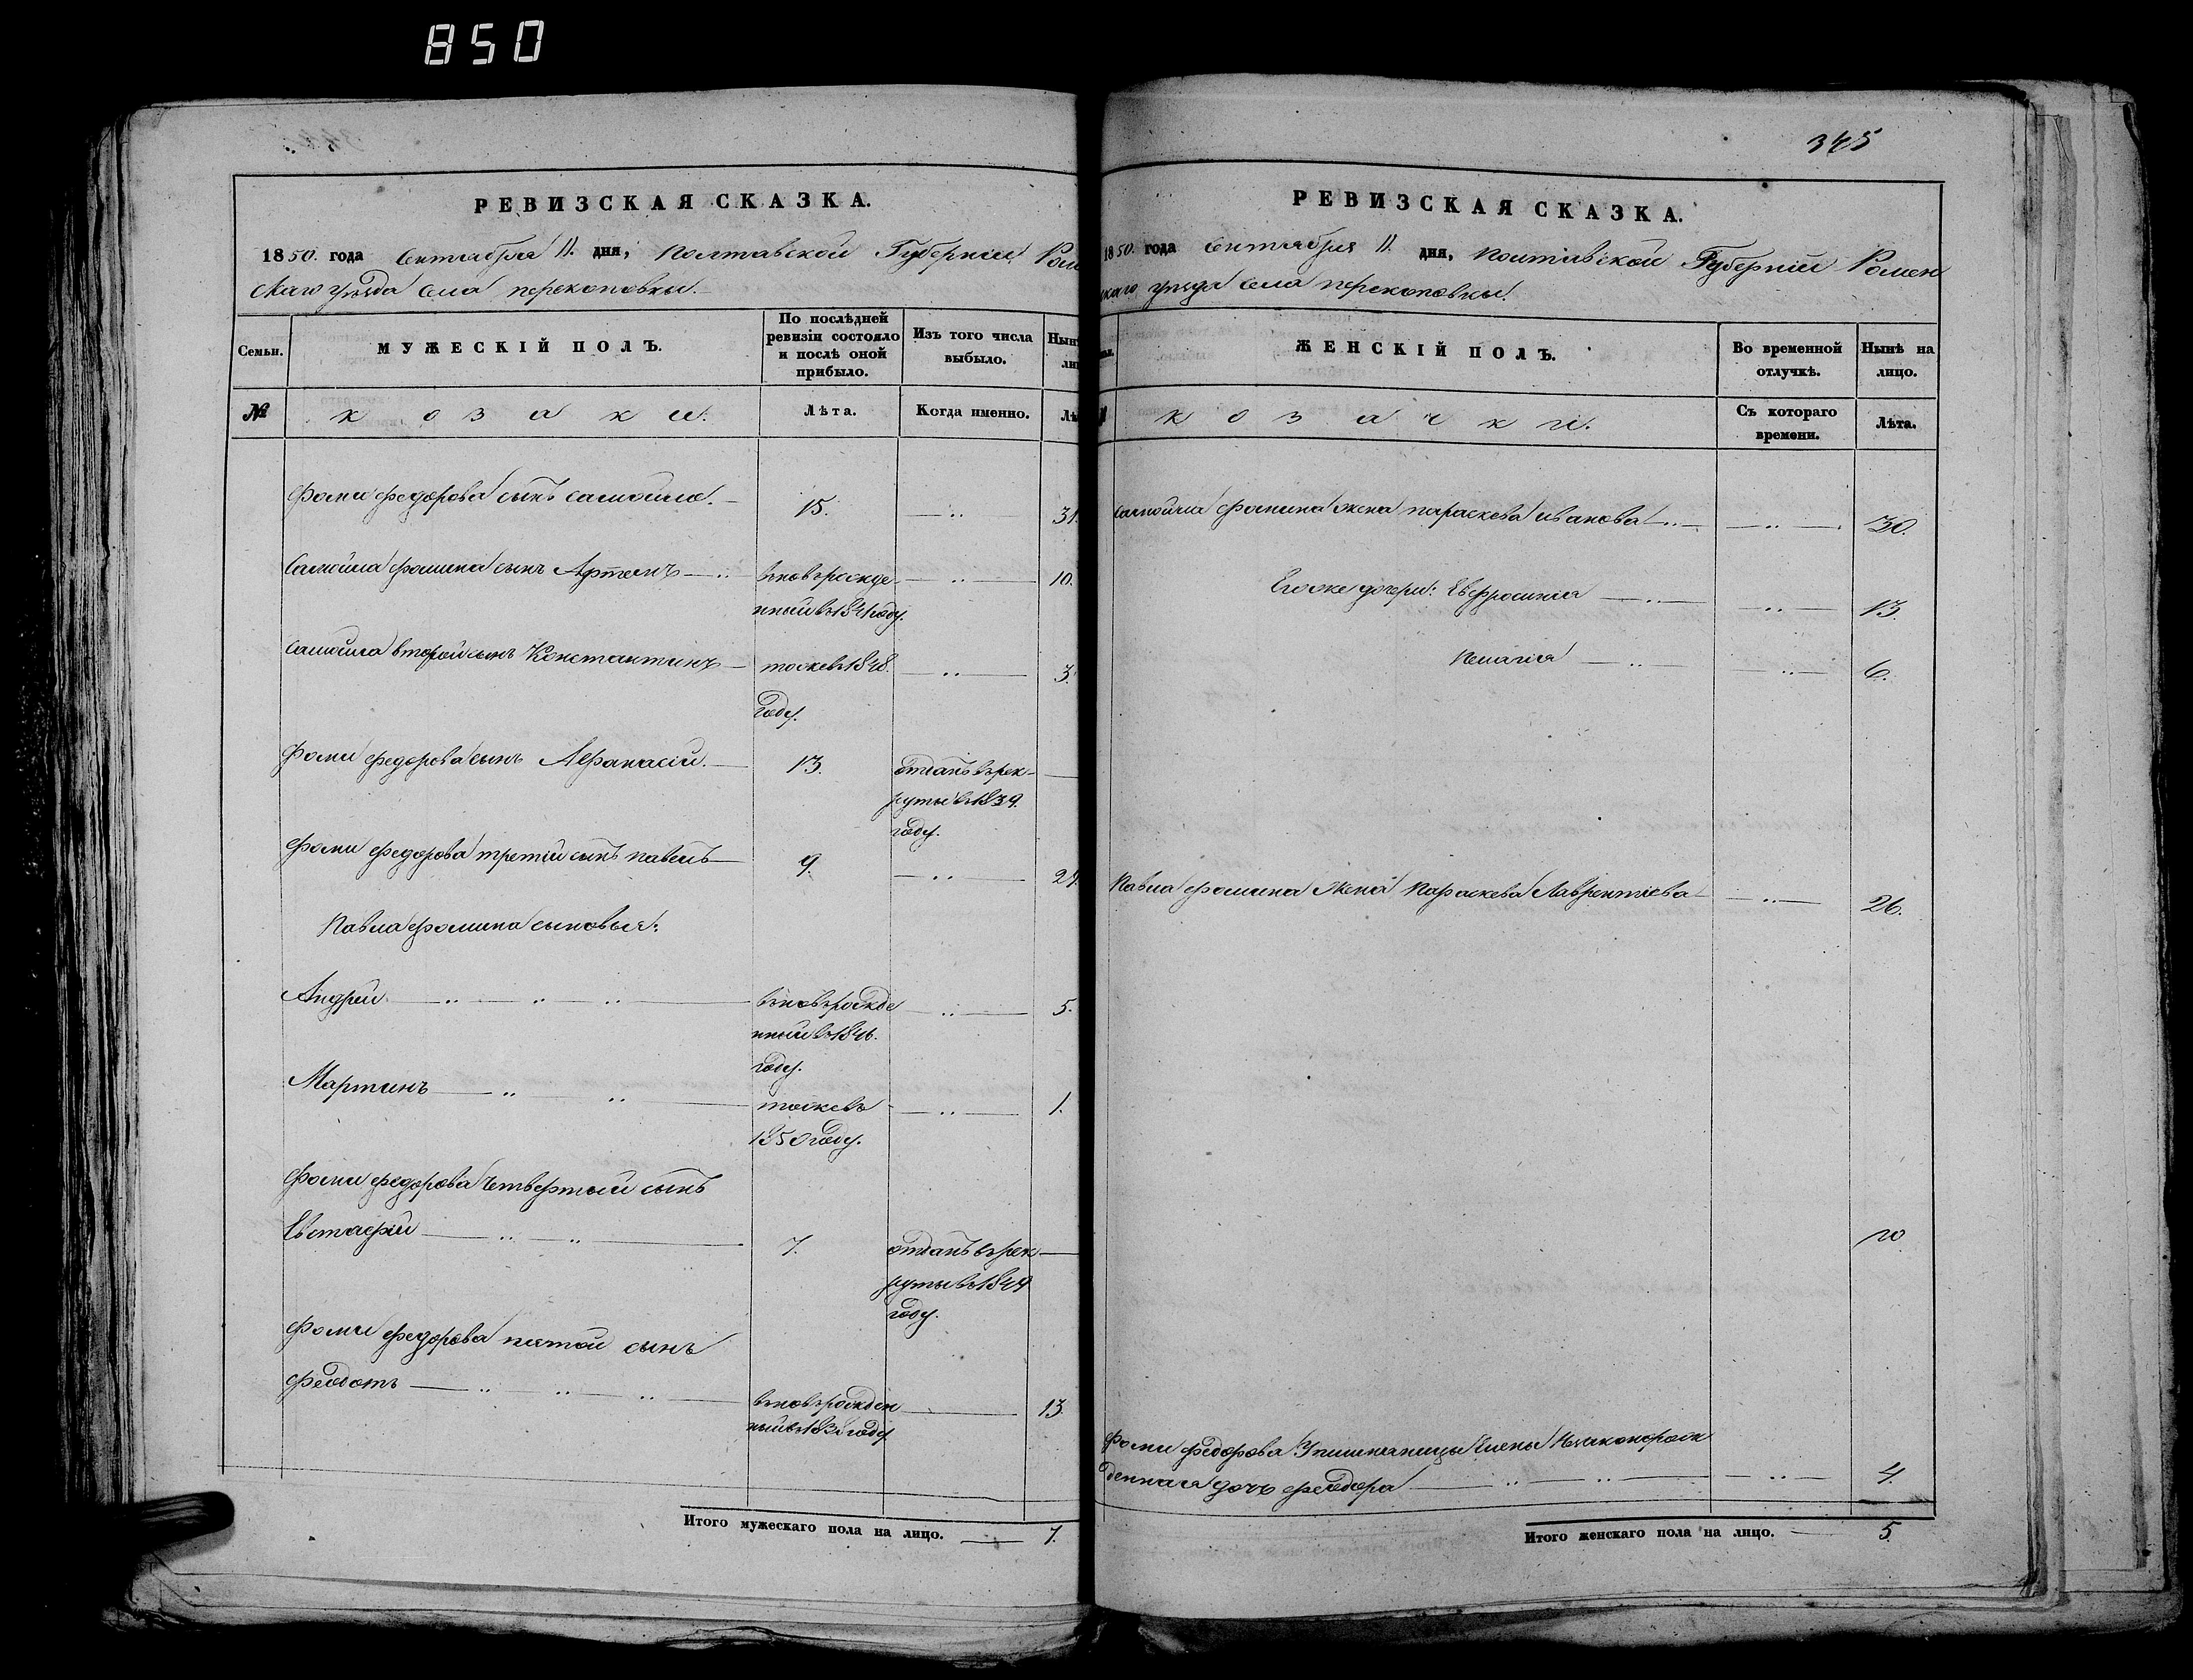 850
РЕВИЗСКАЯ СКАЗКА.
1850. года Сентября 11. дня, Полтавской Губерніи Ромен
скаго уѣзда села перекоповки.
Семьи.
МУЖЕСКІЙ ПОЛЪ.
По послѣдней
ревизіи состояло
и послѣ оной
прибыло.
Изъ того числа
выбыло.
Нын
ли
№
козаки.
Лѣта.
Когда именно.
Лѣ
Фоми федорова сынъ самойло.
15.
31.
Самойла фомина сынъ Артемъ
вновьрожде
нныйвъ1841году.
10.
самойла второйсынъ Константинъ
тожевъ1848.
году.
3.
Фоми федорова сынъ Афанасій.
13.
отданъ врек
рутывъ1839.
году.
Фоми федорова третій сынъ павелъ
9.
24.
Павла фомина сыновья:
Андрей
вновьрожде
нныйвъ1846.
году.
5.
Мартинъ
тожевъ
1850году.
1.
Фоми федорова четвертый сынъ
Евстафій
7.
отданъ врек
рутывъ1844
году.
Фоми федорова пятой сынъ
Феодотъ
вновьрожден
ныйвъ1838году
13.
Итого мужескаго пола на лицо. 7.
345
РЕВИЗСКАЯ СКАЗКА.
1850. года Сентября 11. дня, Полтавской Губерніи Ромен
скаго уѣзда села перекоповки.
ЖЕНСКІЙ ПОЛЪ.
Во временной
отлучкѣ.
Нынѣ на
лицо.
козачки.
Съ котораго
времени.
Лѣта.
самойла фомина жена параскева иванова
30.
Егоже дочери: Евфросинія
13.
Пелагія
6.
Павла фомина жена Параскева Лаврентіева
26.
Фоми федорова Елены незаконорож
денная дочь феодора
4.
Итого женскаго пола на лицо. 5.